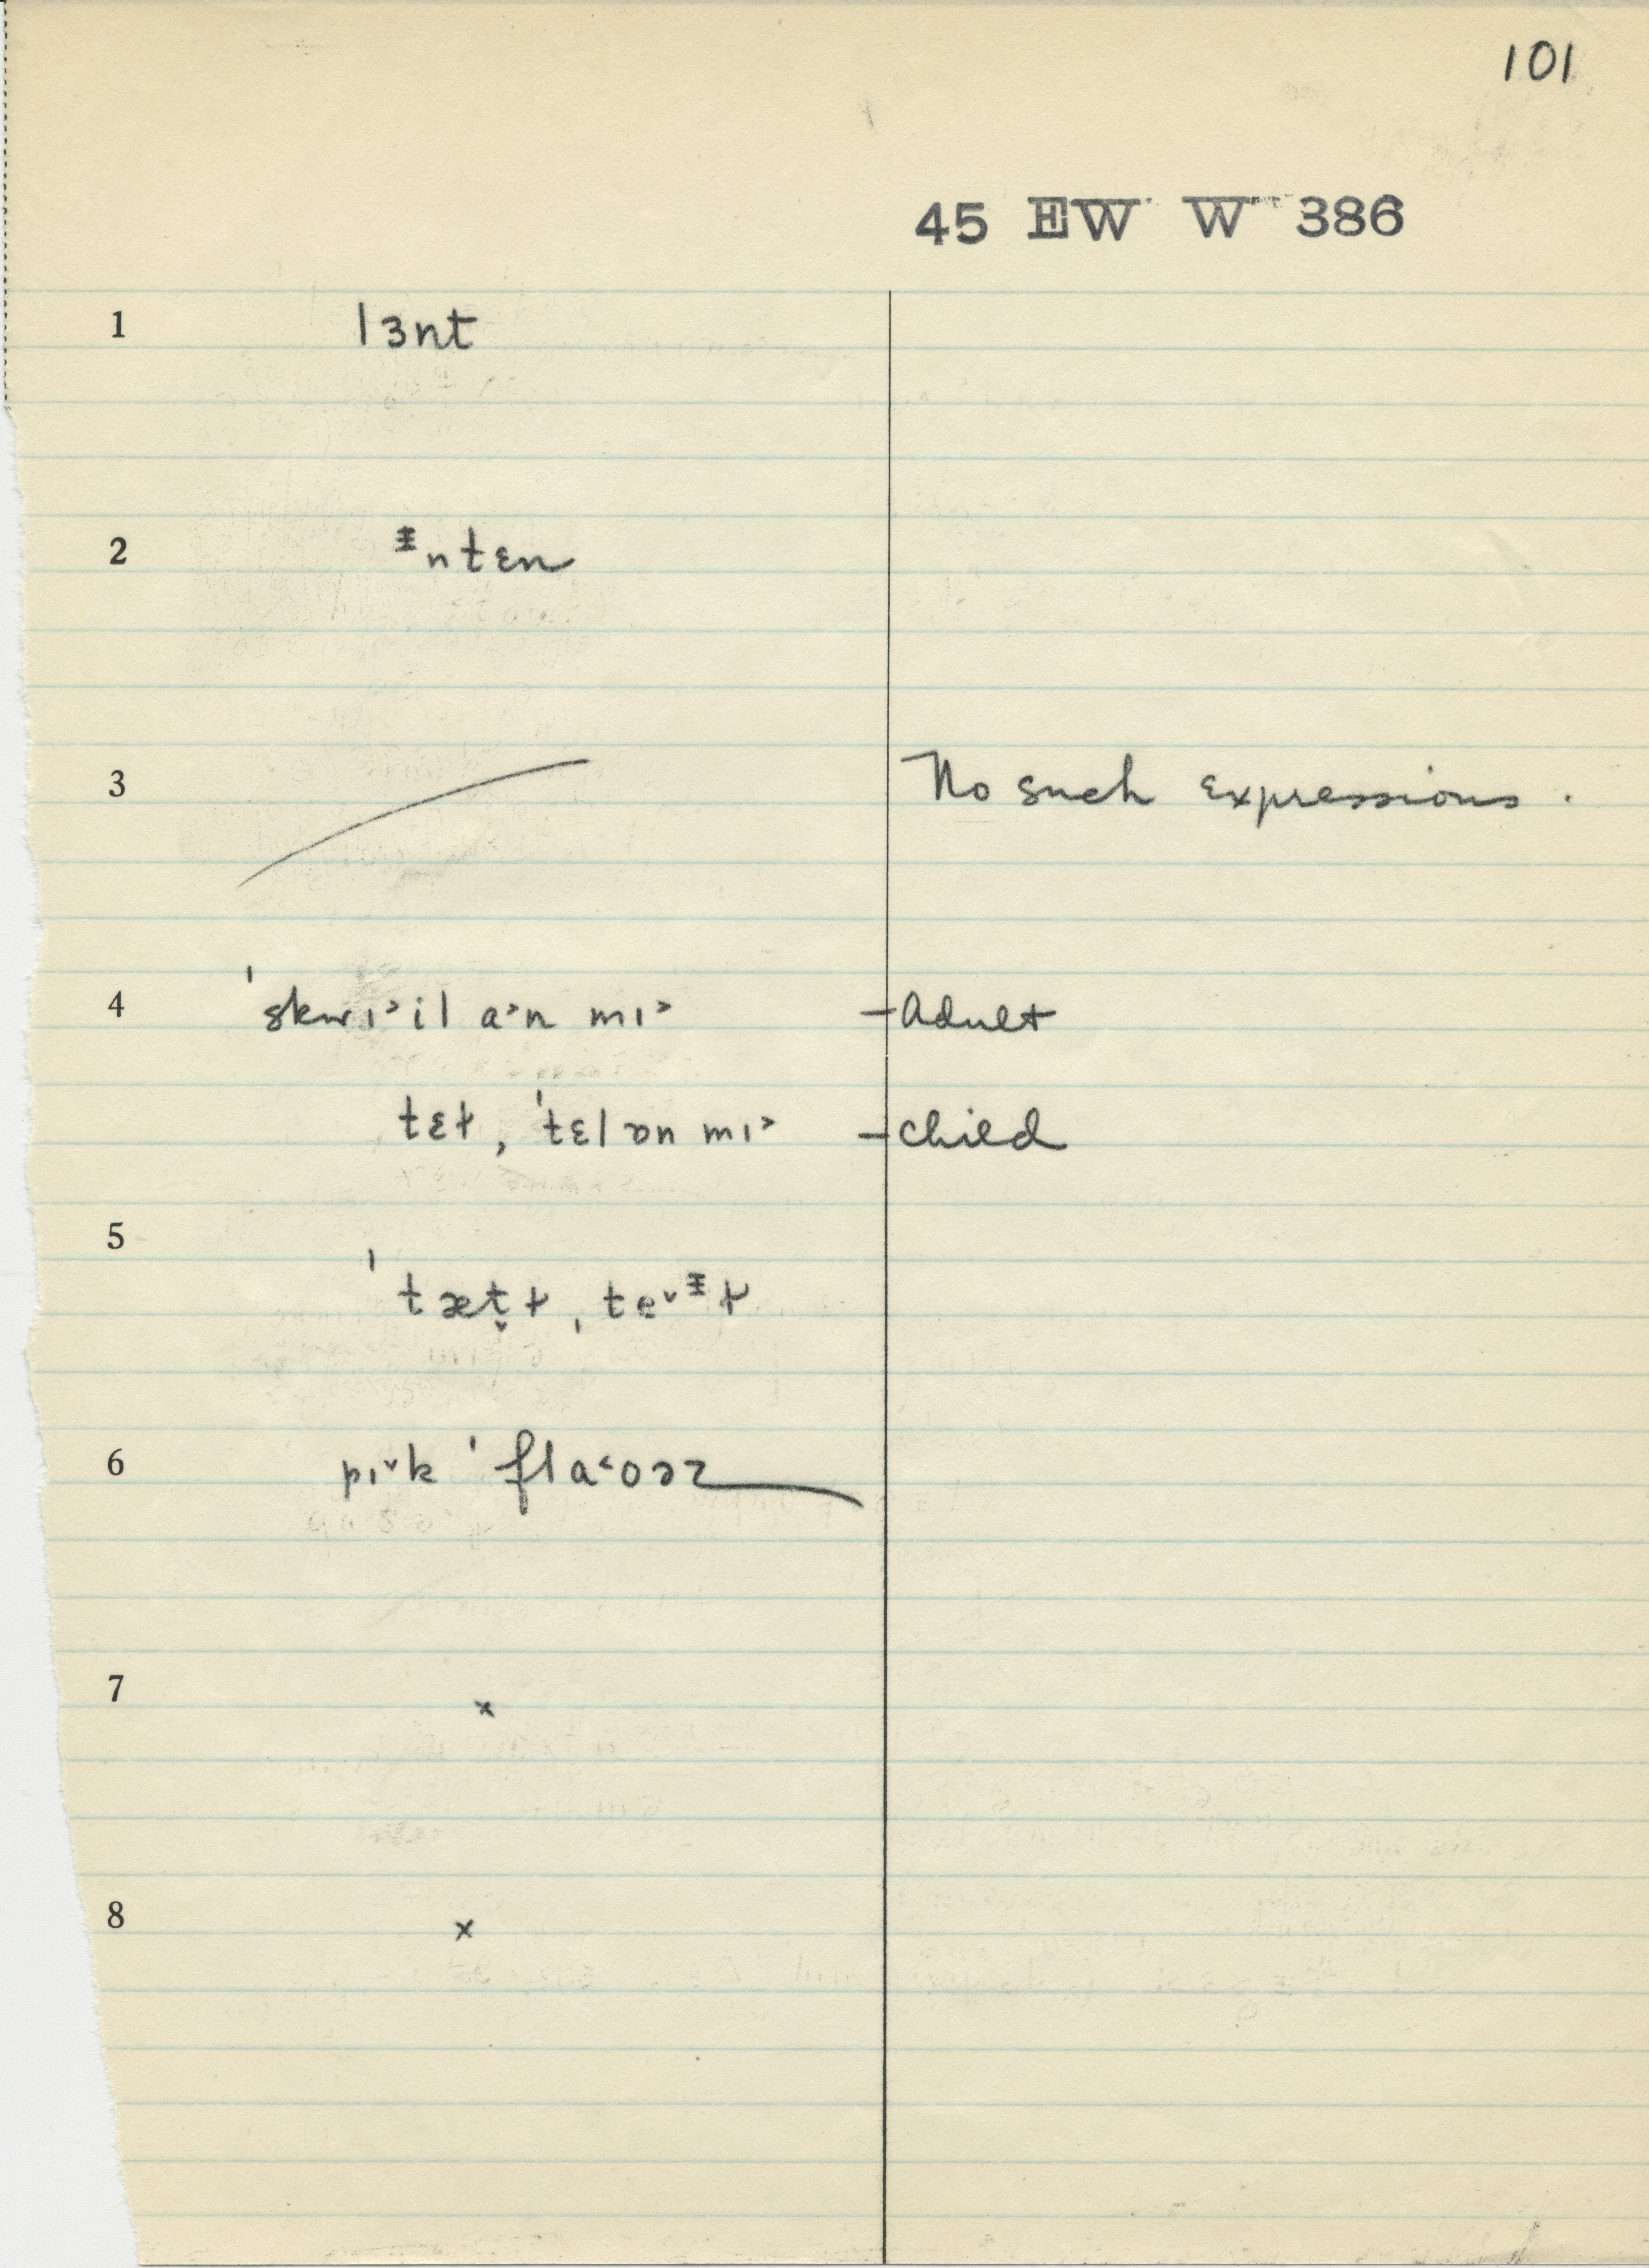 101
45 EW W 386
1 lɜnt
2 ᵻntɛn
3 No such expressions.
4 ˈskwɪ˃il a˃n mɪ˃ – Adult
tɛɫ, ˈtɛl ɒn mɪ˃ – child
5
ˈtæt̬ɫ, te˅ᵻɫ
6 pɪ˅k ˈfla˂oəz
7 x
8 x